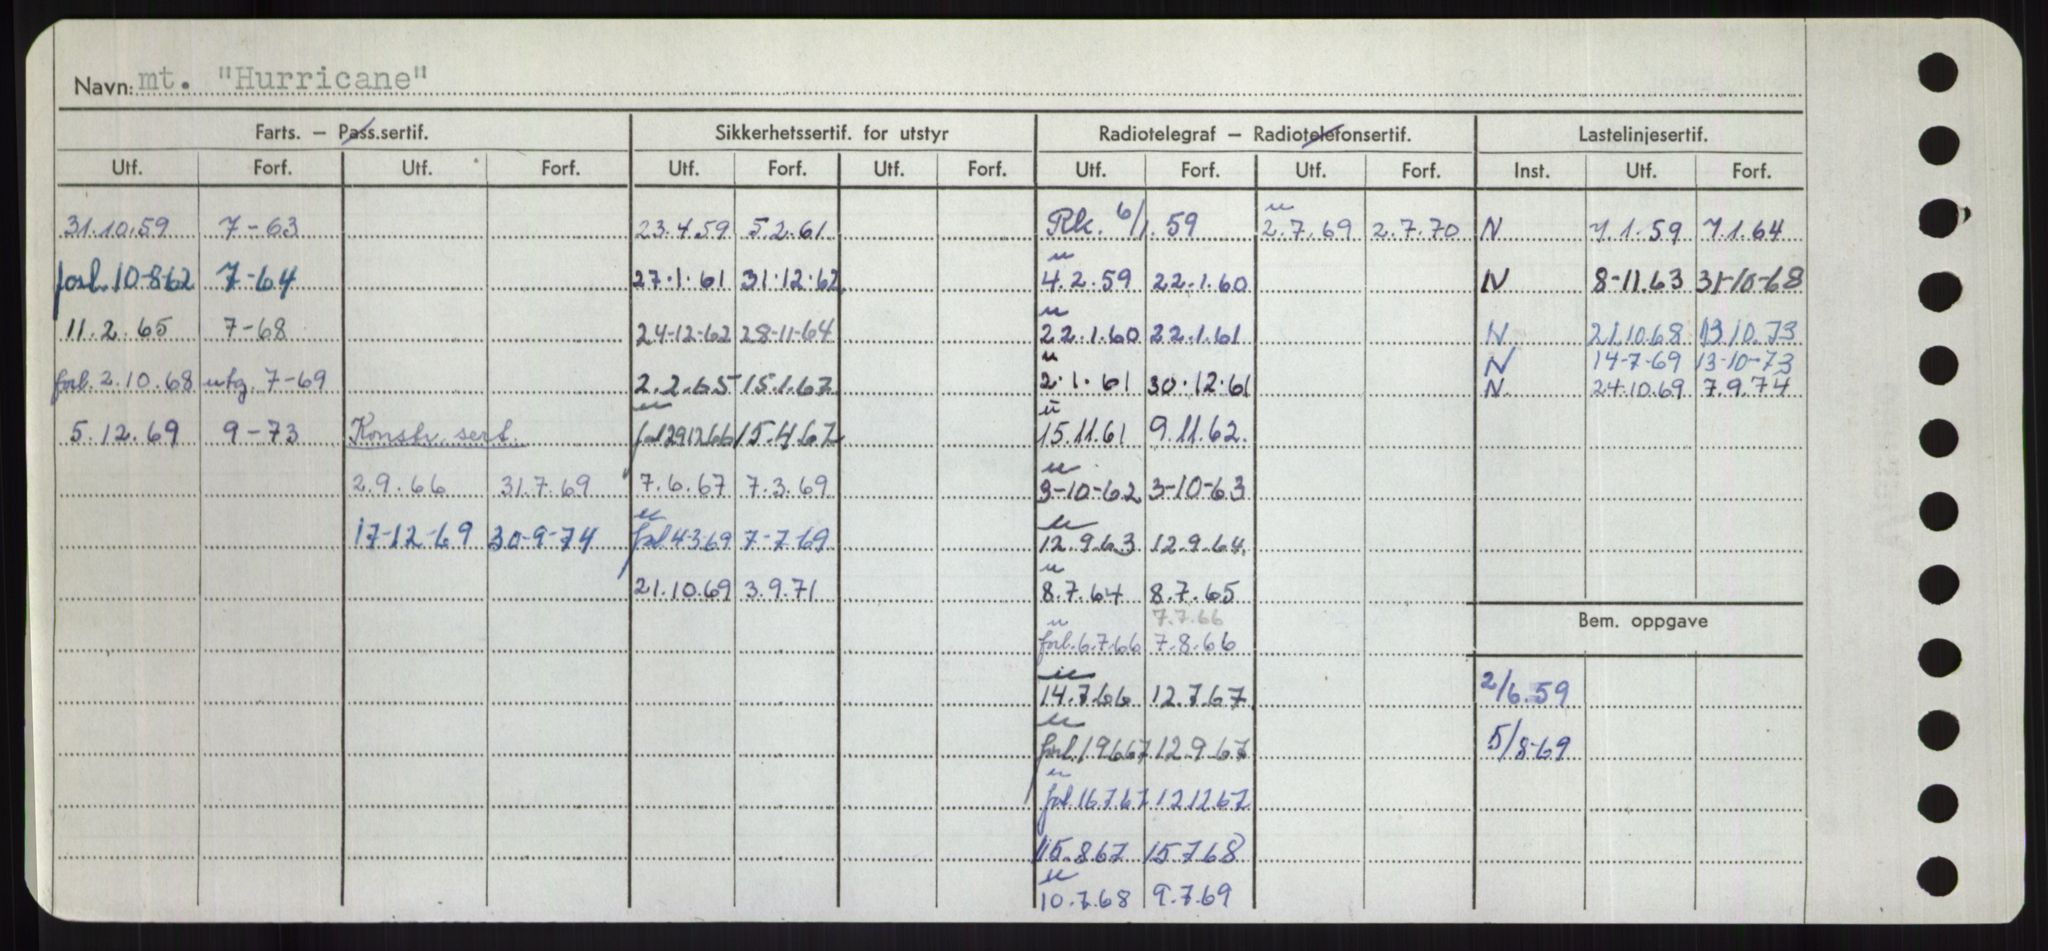 Navn: mt. "Hurricane"
Farts. – Pass.sertif. Sikkerhetssertif. for utstyr Radiotelegraf – Radiotelefonsertif. Lastelinjesertif.
Utf. Forf. Utf. Forf. Utf. Forf. Utf. Forf. Utf. Forf. Utf. Forf. Inst. Utf. Forf.
31.10.59 7-63 23.4.59 5.2.61 Rk. 6/1.59 u 2.7.69 2.7.70 N 7.1.59 7.1.64
forl. 10-8-62 7-64 27.1.61 31.12.62 u 4.2.59 22.1.60 N 8-11.63 31-10-68
11.2.65 7-68 24-12-62 28-11-64 u 22.1.60 22.1.61 N 21.10.68 13.10.73
N 14-7-69 13-10-73
forl. 2.10.68 utg. 7-69 2.2.65 15.1.67 u 2.1.61 30.12.61 N. 24.10.69 7.9.74
5.12.69 9-73 Konstr. sert. u forl 29.12.66 15.4.67 u 15.11.61 9.11.62
2.9.66 31.7.69 7.6.67 7.3.69 u 3-10-62 3-10-63
17-12-69 30-9-74 u forl 4-3-69 7-7-69 u 12.9.63 12.9.64
21.10.69 3.9.71 u 8.7.64 8.7.65
7.7.66
Bem. oppgave
u forl. 6.7.66 7.8.66
u 14.7.66 12.7.67 2/6.59
u forl. 19.6.67 12.9.67 5/8-69
u forl 16.7.67 12.12.67
15.8.67 15.7.68
u 10.7.68 9.7.69